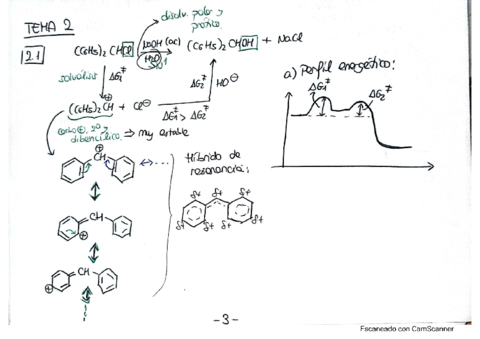 TEMA 2
disolv. polar y
prótico
2.1
(C6H5)2 CHCl NaOH (ac) (C6H5)2 CHOH + NaCl
H2O
SN1
solvólisis ΔG1‡
ΔG2‡ HO⊖
(C6H5)2 CH + Cl⊖
ΔG1‡ > ΔG2‡
carbo⊕, 2º y
dibencílico ⇒ muy estable
a) Perfil energético:
ΔG1‡
ΔG2‡
CH
⊕
Híbrido de
resonancia:
CH
⊕
δ+ δ+ δ+ δ+ δ+ δ+ δ+
CH
⊕
-3-
Escaneado con CamScanner